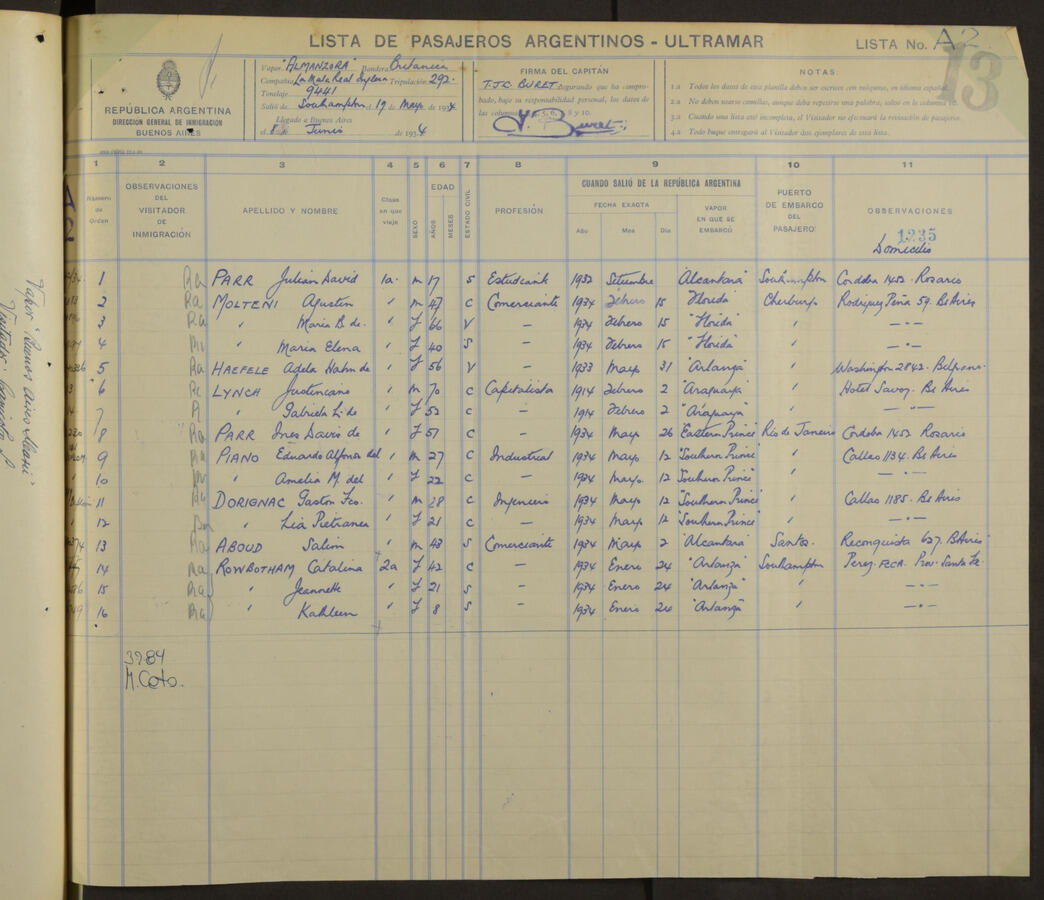 LISTA DE PASAJEROS ARGENTINOS - ULTRAMAR
LISTA No. A2
13
REPÚBLICA ARGENTINA
DIRECCIÓN GENERAL DE INMIGRACIÓN
BUENOS AIRES
Vapor "ALMANZORA" Bandera Britanica
Compañía La Mala Real Inglesa Tripulación 292.
Tonelaje 9441
Salió de Southampton el 19 de Mayo de 1934
Llegado a Buenos Aires
el de Junio de 1934
FIRMA DEL CAPITÁN
T.J.C. BURET Asegurando que ha comprobado, bajo su responsabilidad personal, los datos de
las columnas 8 y 10.
Buret
NOTAS:
1.a Todos los datos de esta planilla deben ser escritos con máquina, en idioma español.
2.a No deben usarse comillas, aunque deba repetirse una palabra, salvo en la columna 10.
3.a Cuando una lista esté incompleta, el Visitador no efectuará la revisación de pasajeros.
4.a Todo buque entregará al Visitador dos ejemplares de esta lista.
1 2 3 4 5 6 7 8 9 10 11
Número de Orden
OBSERVACIONES DEL VISITADOR DE INMIGRACIÓN
APELLIDO Y NOMBRE
Clase en que viaja
SEXO
EDAD
AÑOS
MESES
ESTADO CIVIL
PROFESIÓN
CUANDO SALIÓ DE LA REPÚBLICA ARGENTINA
FECHA EXACTA
Año Mes Día
VAPOR EN QUE SE EMBARCÓ
PUERTO DE EMBARCO DEL PASAJERO
OBSERVACIONES
1235
Domicilio
1 Ra PARR Julian David 1a. m 17 S Estudiante 1932 Setiembre Alcantara" Southampton Cordoba 1452. Rosario
2 Ra MOLTENI Agustin " m 47 C Comerciante 1934 Febrero 15 "Florida" Cherburgo Rodriguez Peña 59. Bs Aires
3 Ra " Maria B. de. " f 66 V — 1934 Febrero 15 "Florida" " — " —
4 " Maria Elena " f 40 S — 1934 Febrero 15 "Florida" " — " —
5 Ra HAEFELE Adela Hahn de " f 56 V — 1933 Mayo 31 "Arlanza" " Washington 2842. Belgrano.
6 LYNCH Justiniano " m 70 C Capitalista 1914 Febrero 2 "Araguaya" " Hotel Savoy. Bs Aires
7 " Gabriela L. de " f 52 C — 1914 Febrero 2 "Araguaya" " — " —
8 Ra PARR Ines Davis de " f 51 C — 1934 Mayo 26 "Eastern Prince" Rio de Janeiro Cordoba 1452 Rosario
9 Ra PIANO Eduardo Alfonso del " m 27 C Industrial 1934 Mayo 12 "Southern Prince" " Callao 1134. Bs Aires
10 " Amelia M. del " f 22 C — 1934 Mayo. 12 "Southern Prince" " — " —
11 Ra DORIGNAC Gaston Fco. " m 28 C Ingeniero 1934 Mayo 12 "Southern Prince" " Callao 1185. Bs Aires
12 " Lia Pietranera " f 21 C — 1934 Mayo 12 "Southern Prince" " — " —
13 Ra ABOUD Salim " m 43 S Comerciante 1934 Mayo 2 "Alcantara" Santos. Reconquista 627. B Aires
14 Ra ROWBOTHAM Catalina 2a f 42 C — 1934 Enero 24 "Arlanza" Southampton Perez. F.C.C.A. Prov. Santa Fe.
15 Ra " Jeannette " f 21 S — 1934 Enero 24 "Arlanza" " — " —
16 Ra " Kathleen " f 8 S — 1934 Enero 24 "Arlanza" " — " —
3984
M. Coto.